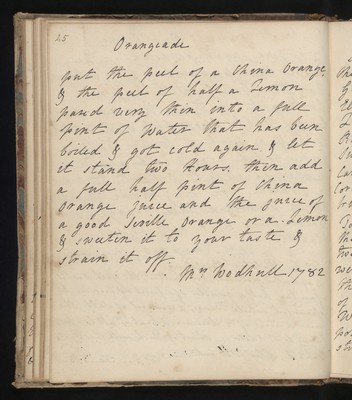 25
Orangeade
put the peel of a China Orange
& the peel of half a Lemon
pared very thin into a full
pint of Water that has been
boiled & got cold again, & let
it stand two Hours. then add
a full half pint of China
orange juice and the juice of
a good Seville Orange or a Lemon
& sweeten it to your taste &
strain it off.
Mrs Wodhull 1782